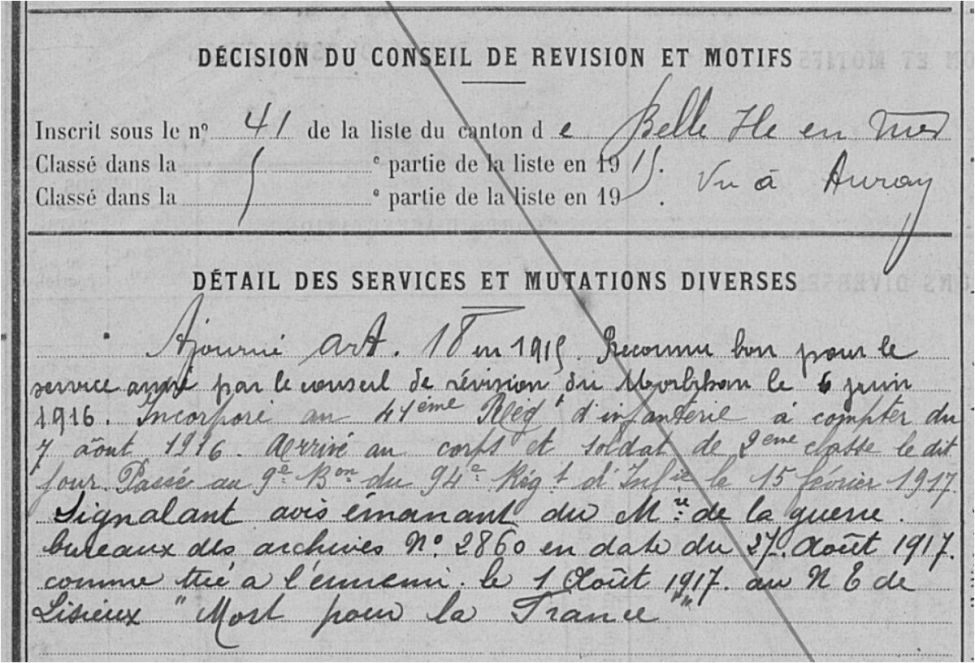 DÉCISION DU CONSEIL DE REVISION ET MOTIFS
Inscrit sous le nº 41 de la liste du canton d e Belle Ile en mer
Classé dans la e partie de la liste en 1915.
Classé dans la e partie de la liste en 19 .
Vu à Auray
DÉTAIL DES SERVICES ET MUTATIONS DIVERSES
Ajourné art. 18 en 1915. Reconnu bon pour le
service armé par le conseil de révision du Morbihan le 6 juin
1916. Incorporé au 41ème Régt d'infanterie à compter du
7 août 1916. Arrivé au corps et soldat de 2ème classe le dit
jour. Passé au 9e Bon du 94e Régt d'Infie le 15 février 1917.
Signalant avis émanant du Mre de la guerre.
bureaux des archives Nº 2860 en date du 27 Août 1917.
comme tué a l'ennemi. le 1 Août 1917. au N E de
Lisieux "Mort pour la France"